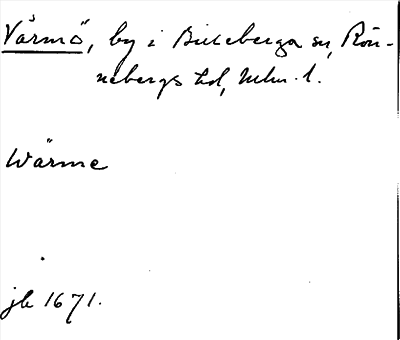 Värmö, by i Billeberga sn, Rön-
nebergs hd, Mlm. l.
Wärme
jb 1671.